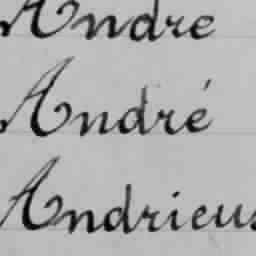 Andre
André
Andrieus